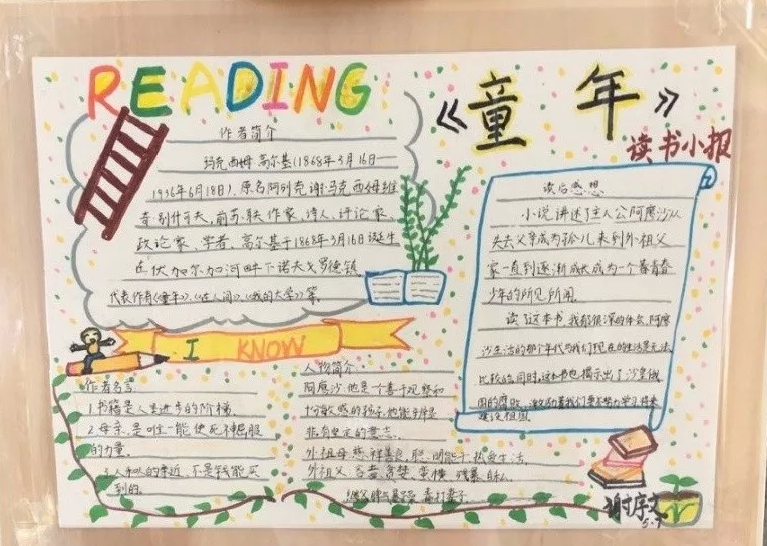 READING
《童年》
读书小报
作者简介
玛克西姆·高尔基(1868年3月16日—
1936年6月18日),原名阿列克谢·马克西姆维
奇·别什可夫,前苏联作家、诗人、评论家、
政论家、学者、高尔基于1868年3月16日诞生
在伏加尔加河畔下诺夫戈罗德镇
代表作有《童年》、《在人间》、《我的大学》等.
I KNOW
作者名言
1.书籍是人类进步的阶梯.
2.母亲,是唯一能使死神屈服
的力量.
3.人和人的亲近,不是钱能买
到的.
人物简介
阿廖沙:他是个善于观察和
十份敏感的孩子,他能
非有坚定的意志.
外祖母:慈祥善良,聪明能干,热爱生活,
外祖父:吝啬、贪婪、专横、残暴、自私
脾气暴躁 毒打妻子
读后感想
小说讲述了主人公阿廖沙从
失去父亲成为孤儿来到外祖父
家一直到逐渐成长成为一个青春
少年的所见所闻.
读了这本书,我有很深的体会,阿廖
沙生活的那个年代与我们现在的生活是无法
比较的,同时,这本书也揭示出了沙皇俄
国的腐败,激励着我们要努力学习将来
建设祖国.
谢序文
5.9